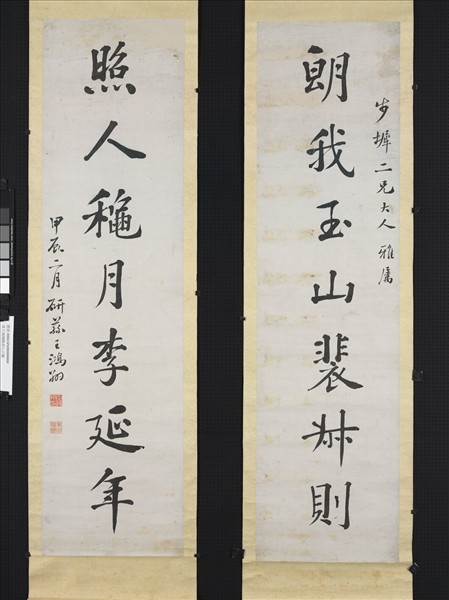 步墀二兄大人雅屬
朗我玉山裴叔則
照人穐月李延年
甲辰二月研蓀王鴻翔